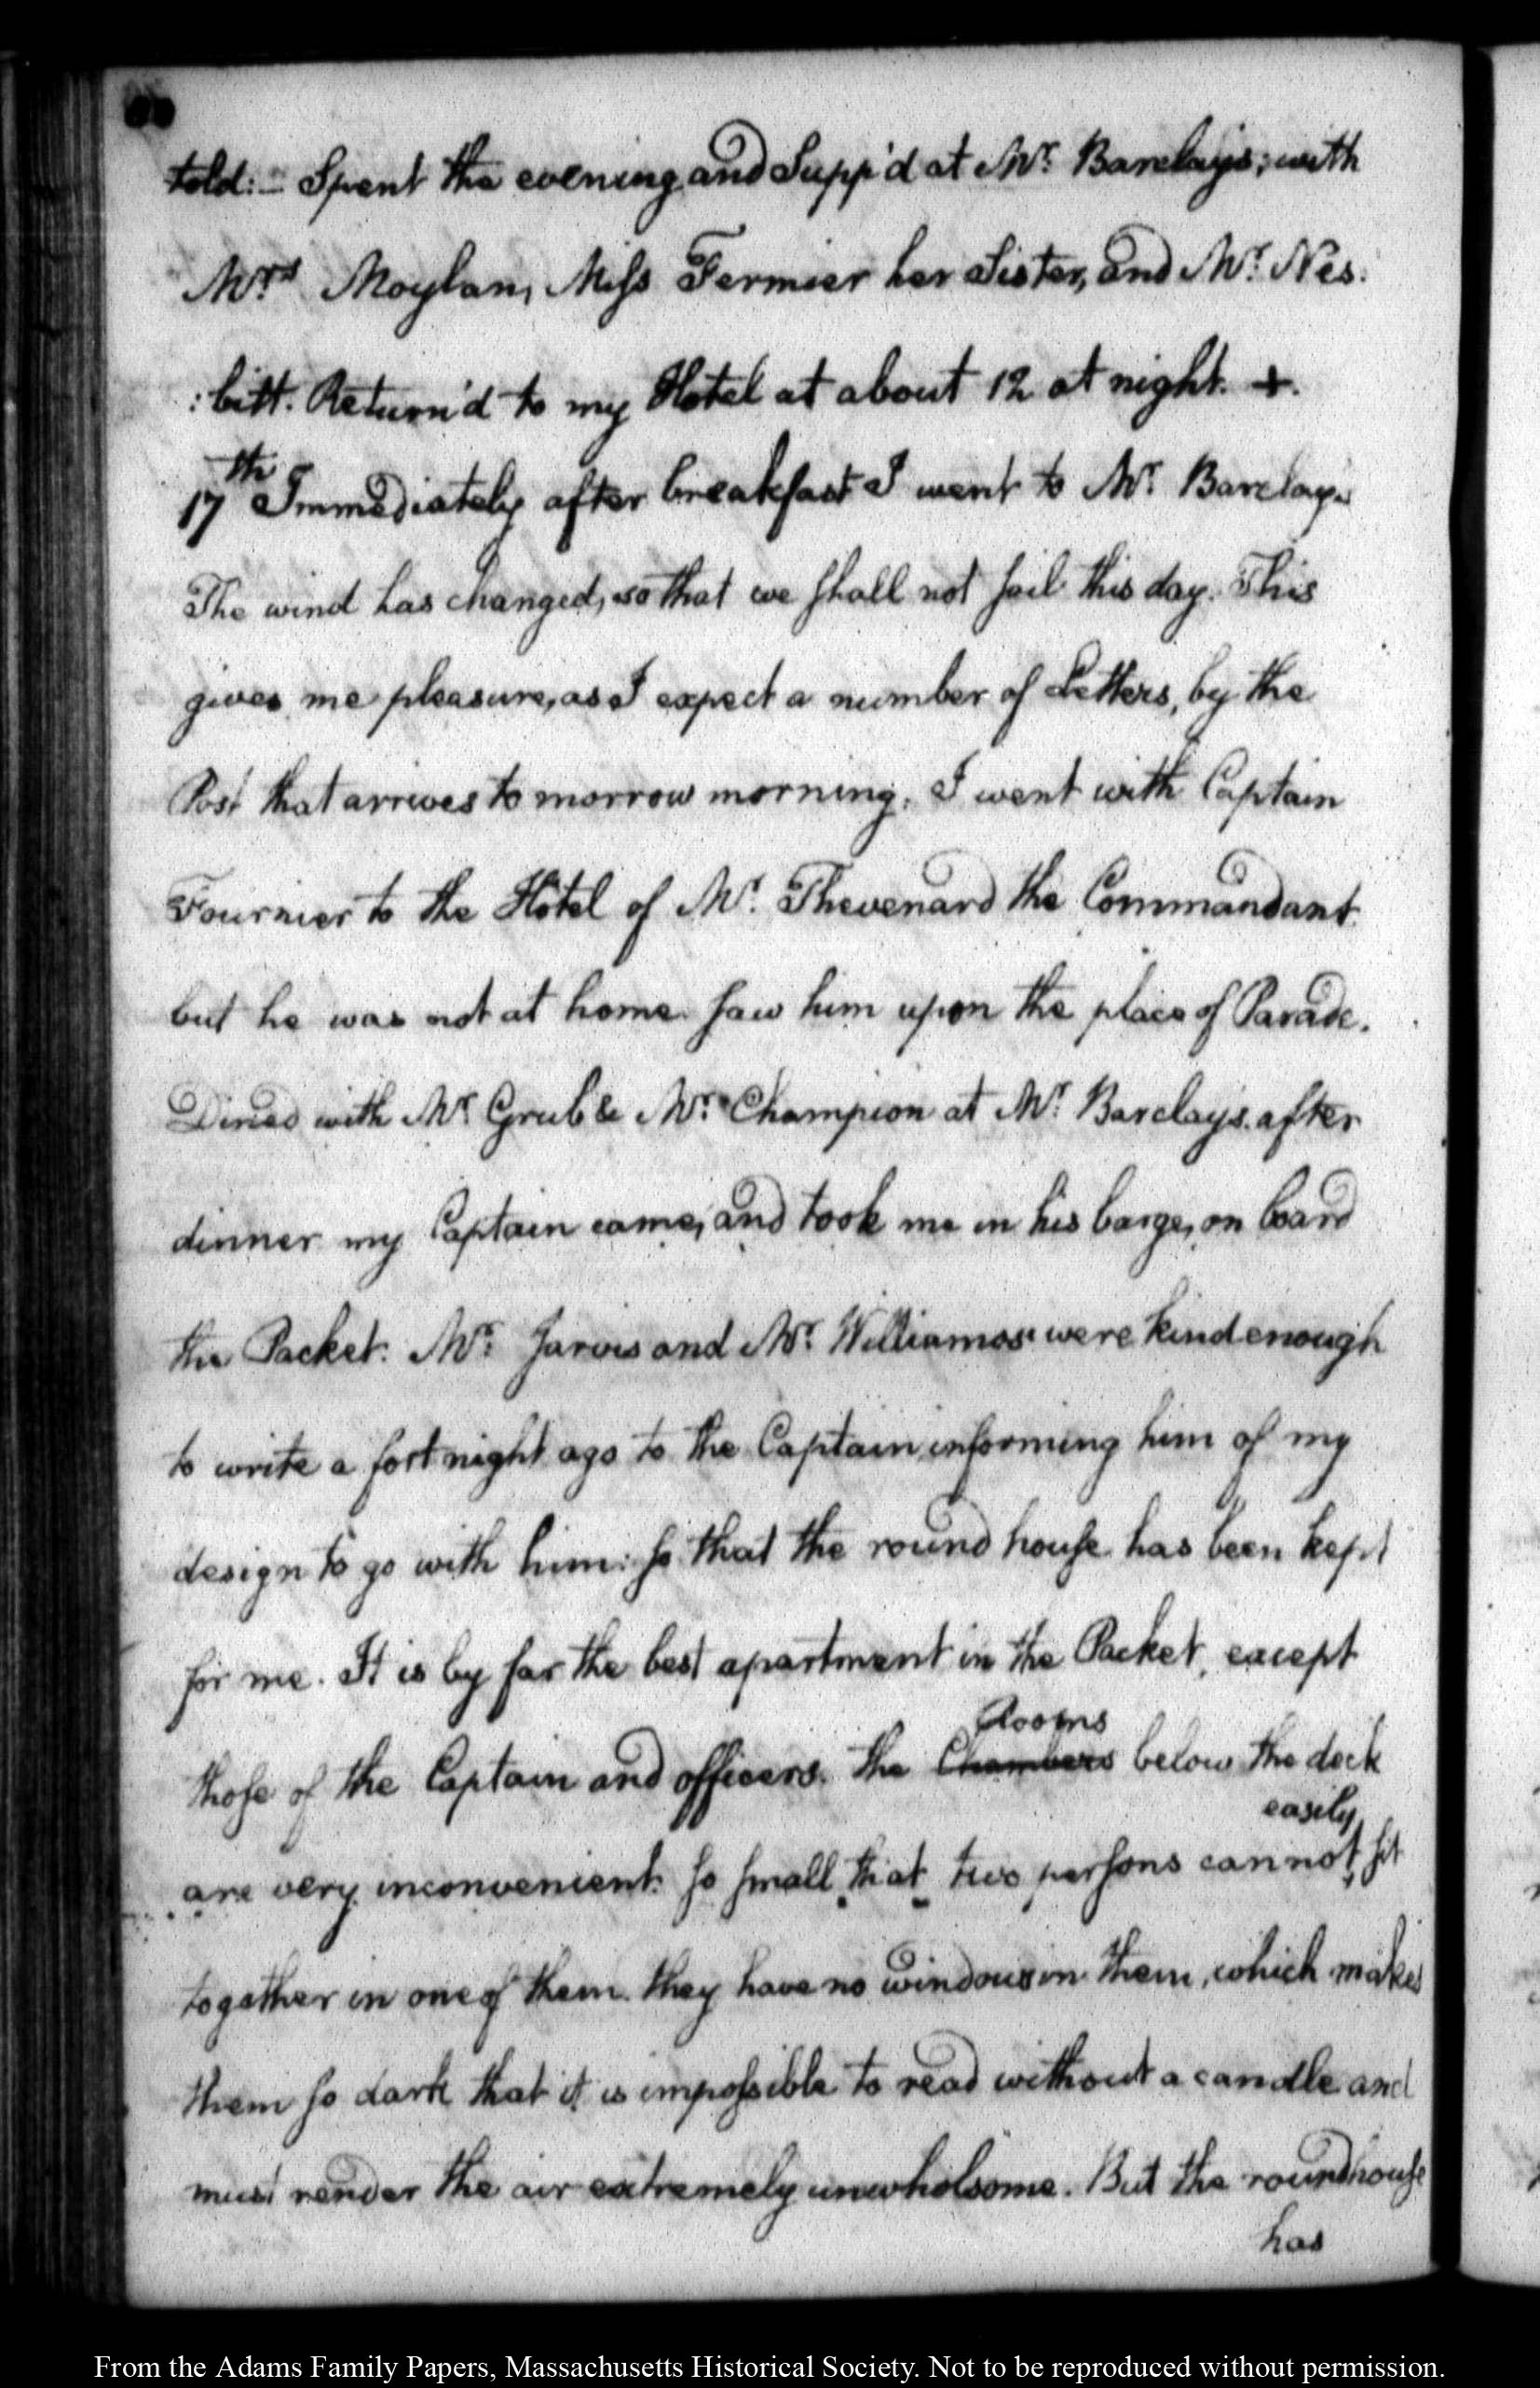 told:- Spent the evening and Supp'd at Mr. Barclays; with
Mrs. Moylan, Miss Fermier her Sister, and Mr. Nes:
:bitt. Return'd to my Hotel at about 12 at night. +.
17th Immediately after breakfast I went to Mr. Barclays
The wind has changed, so that we shall not sail this day. This
gives me pleasure, as I expect a number of Letters, by the
Post that arrives to morrow morning. I went with Captain
Fournier to the Hôtel of Mr. Thevenard the Commandant
but he was not at home. saw him upon the place of Parade.
Dined with Mr. Grub & Mr. Champion at Mr. Barclays. after
dinner my Captain came, and took me in his barge, on board
the Packet. Mr. Jarvis and Mr. Williamos were kind enough
to write a fortnight ago to the Captain informing him of my
design to go with him: so that the round house has been kept
for me. It is by far the best apartment in the Packet, except
Rooms
those of the Captain and officers. the Chambers below the deck
easily
are very inconvenient. so small that two persons cannot sit
together in one of them. they have no windows in them, which makes
them so dark that it is impossible to read without a candle and
must render the air extremely unwholsome. But the roundhouse
has
From the Adams Family Papers, Massachusetts Historical Society. Not to be reproduced without permission.